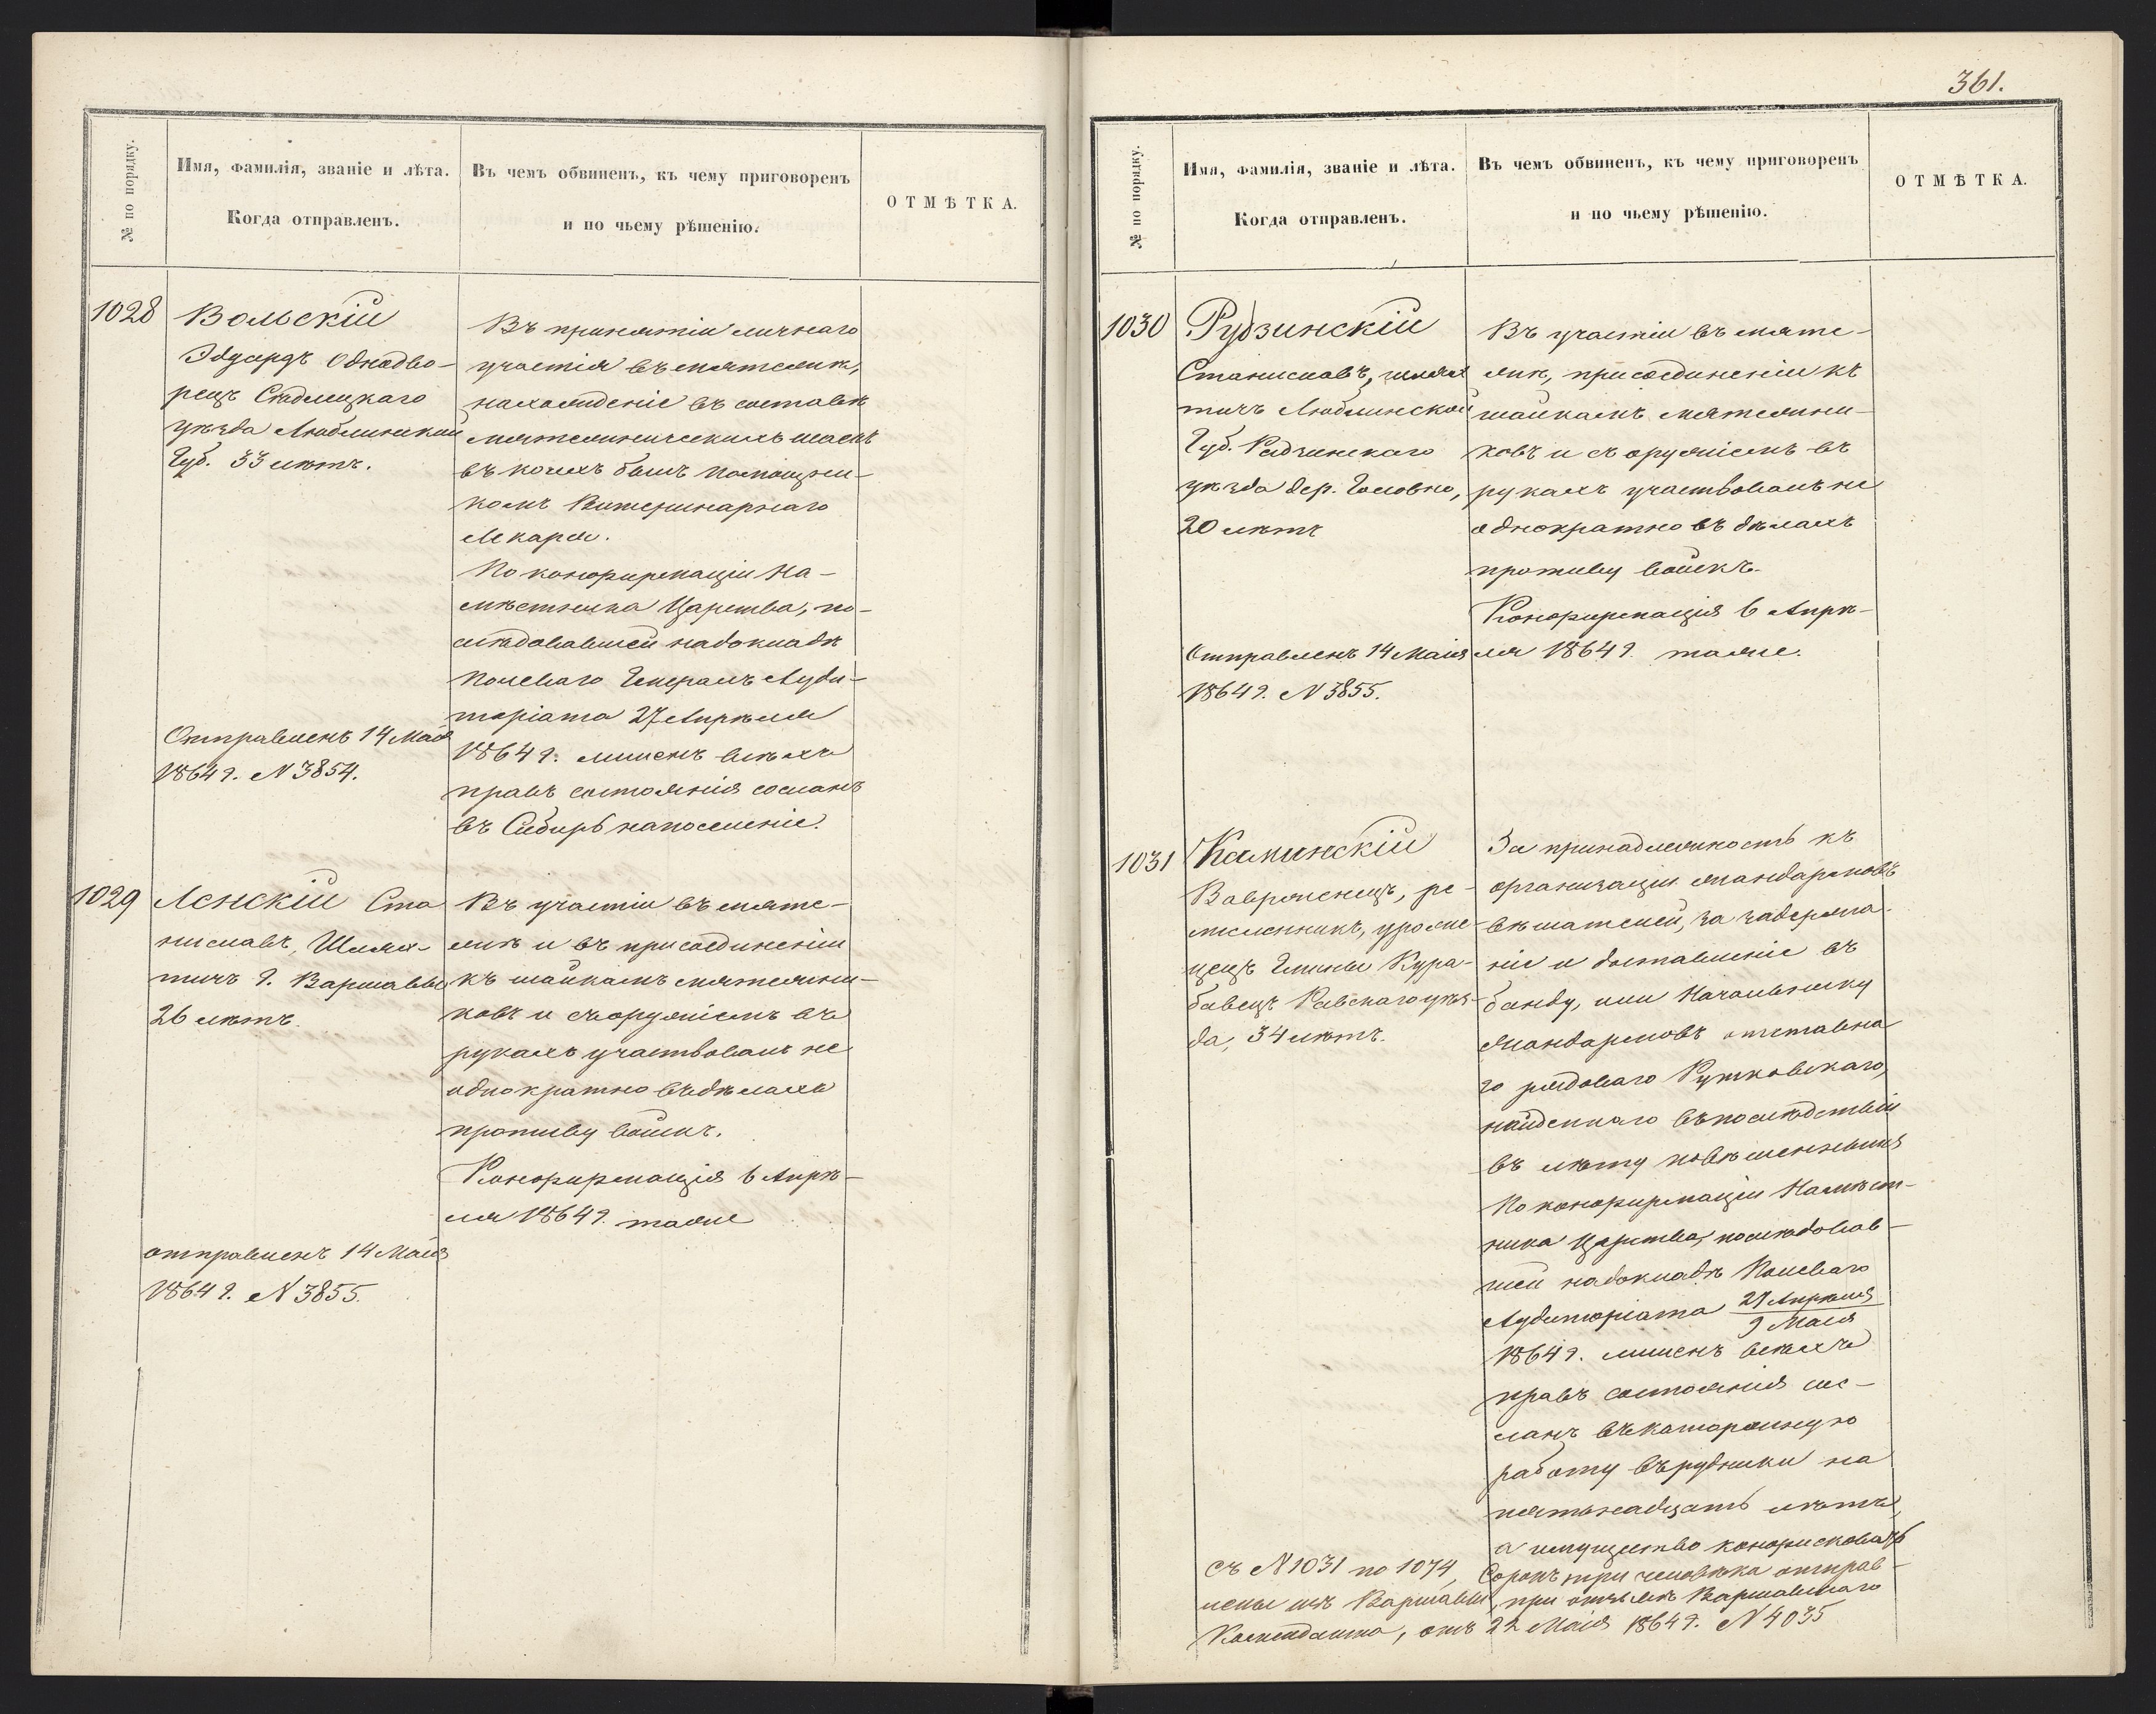 № по порядку.
Имя, фамилія, званіе и лѣта.
Когда отправленъ.
Въ чемъ обвиненъ, къ чему приговоренъ
и по чьему рѣшенію.
ОТМѢТКА.
1028
Вольскій
Эдуардъ Однодво-
рецъ Сѣдлецкаго
уѣзда Люблинской
Губ. 33 лѣтъ.
Отправленъ 14 Мая
1864 г. N 3854.
Въ принятіи личнаго
участія въ мятежѣ,
нахожденіе въ составѣ
мятежническихъ шаекъ
въ коихъ былъ помощни-
комъ Ветеринарнаго
Лекаря.
По конфирмаціи На-
мѣстника Царства, по-
слѣдовавшей надокладѣ
Полеваго Генералъ Ауди-
торіата 27 Апрѣля
1864 г. лишенъ всѣхъ
правъ состоянія сосланъ
въ Сибирь напоселеніе.
1029
Ленскій Ста
ниславъ, Шлях-
тичъ г. Варшавы
26 лѣтъ.
отправленъ 14 Маія
1864 г. N 3855.
Въ участіи въ мяте-
жѣ и въ присоединеніи
къ шайкамъ мятежни-
ковъ и съоружіемъ въ
рукахъ участвовалъ не
однократно въдѣлахъ
противу войскъ.
Конфирмація 6 Апрѣ-
ля 1864 г. тоже
361.
№ по порядку.
Имя, фамилія, званіе и лѣта.
Когда отправленъ.
Въ чемъ обвиненъ, къ чему приговоренъ
и по чьему рѣшенію.
ОТМѢТКА.
1030
Рудзинскій
Станиславъ, шлях
тичъ Люблинской
Губ. Радзинскаго
уѣзда дер. Головно,
20 лѣтъ
Отправленъ 14 Маія
1864 г. N 3855.
Въ участіи въ мяте-
жѣ, присоединеніи къ
шайкамъ мятежни-
ковъ и съ оружіемъ въ
рукахъ участвовалъ не
однократно въ дѣлахъ
противу войскъ.
Конфирмація 6 Апрѣ-
ля 1864 г. тоже.
1031
Каминскій
Вавржинецъ, ре-
месленникъ, уроже-
нецъ Гмины Кура-
бавецъ Равскаго уѣз-
да, 34 лѣтъ.
За принадлежность къ
организаціи жандармовъ
вѣшателей, за задержа-
ніе и доставленіе въ
банду, или Начальнику
жандармовъ отставна
го рядоваго Рутковскаго,
найденнаго въпослѣдствіи
въ лѣсу повѣшеннымъ
По конфирмаціи Намѣст-
ника Царства, послѣдовав-
шей надокладѣ Полеваго
Аудиторіата 27 Апрѣля
9 Маія
1864 г. лишенъ всѣхъ
правъ состоянія сос-
ланъ въкаторжную
работу върудники на
пятьнадцать лѣтъ,
а имущество конфисковать
съ N 1031 по 1074, Сорокъ три человѣка отправ-
лены изъ Варшавы, при отзывѣ Варшавскаго
Коменданта, отъ 22 Маія 1864 г. N 4035